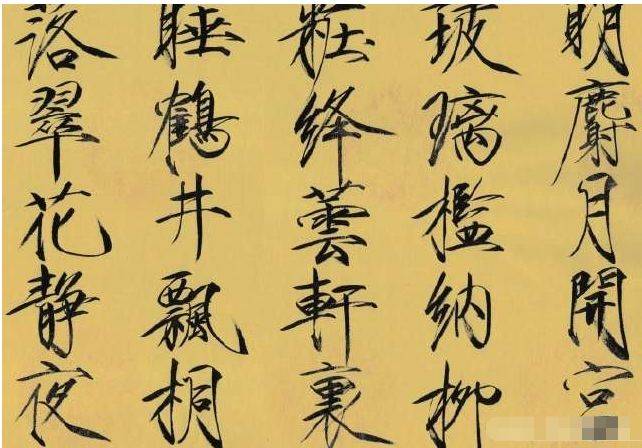 眀麝月開宮
玻璃檻納柳
粧絳蕓軒裏
睡鶴井飄桐
落翠花静夜